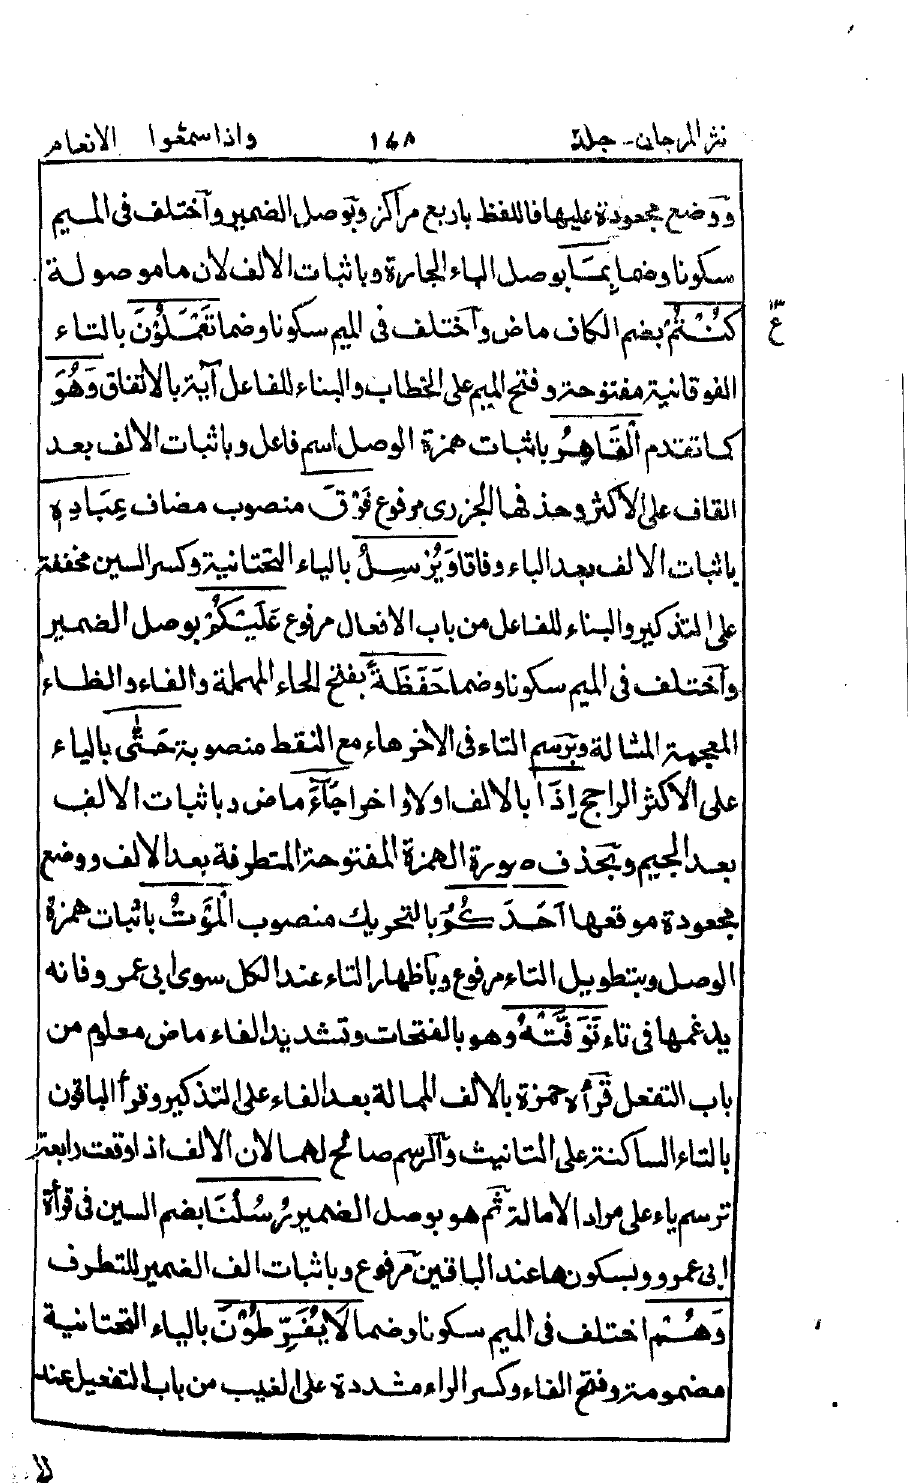 نثر المرجان - جلد ١٤٨ واذا سمعوا الانعام
ووضع مجعودة عليها فاللفظ باربع مراكز وبوصل الضمير وآختلف فى الميم
سكونا وضما بِمَا بوصل الباء الجارة وباثبات الالف لان ما موصولة
كُنْتُمْ بضم الكاف ماض وآختلف فى الميم سكونا وضما تَعْمَلُوْنَ بالتاء
١٣
ع
الفوقانية مفتوحة وفتح الميم على الخطاب والبناء للفاعل آية بالاتفاق وَهُوَ
كما تقدم اَلْقَاهِرُ باثبات همزة الوصل اسم فاعل وباثبات الالف بعد
القاف على الاكثر وحذفها الجزرى مرفوع فَوْقَ منصوب مضاف عِبَادِهٖ
باثبات الالف بعد الباء وفاقا وَيُرْسِلُ بالياء التحتانية وكسر السين مخففة
على التذكير والبناء للفاعل من باب الافعال مرفوع عَلَيْكُمْ بوصل الضمير
وآختلف فى الميم سكونا وضما حَفَظَةً بفتح الحاء المهملة والفاء والظاء
المعجمة المشالة وبرسم التاء فى الاخر هاء مع النقط منصوبة حَتّٰى بالياء
على الاكثر الراجح اِذَا بالالف اولا واخرا جَآءَ ماض وباثبات الالف
بعد الجيم وبحذف صورة الهمزة المفتوحة المتطرفة بعد الالف ووضع
مجعودة موقعها اَحَدَكُمُ بالتحريك منصوب الْمَوْتُ باثبات همزة
الوصل وبتطويل التاء مرفوع وبآظهار التاء عند الكل سوى ابى عمرو فانه
يدغمها فى تاء تَوَفَّتْهُ وهو بالفتحات وتشديد الفاء ماض معلوم من
باب التفعل قرأه حمزة بالالف الممالة بعد الفاء على التذكير وقرأ الباقون
بالتاء الساكنة على التانيث وآلرسم صالح لهما لان الالف اذا وقعت رابعة
ترسم ياء على مراد الامالة ثم هو بوصل الضمير رُسُلُنَا بضم السين فى قرأة
ابى عمرو وبسكونها عند الباقين مرفوع وباثبات الف الضمير للتطرف
وَهُمْ اختلف فى الميم سكونا وضما لَا يُفَرِّطُوْنَ بالياء التحتانية
مضمومة وفتح الفاء وكسر الراء مشددة على الغيب من باب التفعيل عند
لا